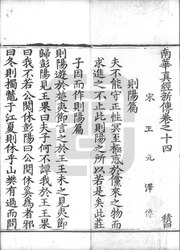 南華真經新傳卷之十四 積四
宋王元澤傳
則陽篇
夫不能守正性冥至極惑於儻來之物而
求進之不止此則陽之所以若是矣此莊
子因而作則陽篇
則陽遊於楚夷節言之於王王未之見夷節
歸彭陽見王果曰夫子何不譚我於王王果
曰我不若公閱休彭陽曰公閱休奚為者邪
曰冬則擉鱉于江夏則休乎山樊有過而問